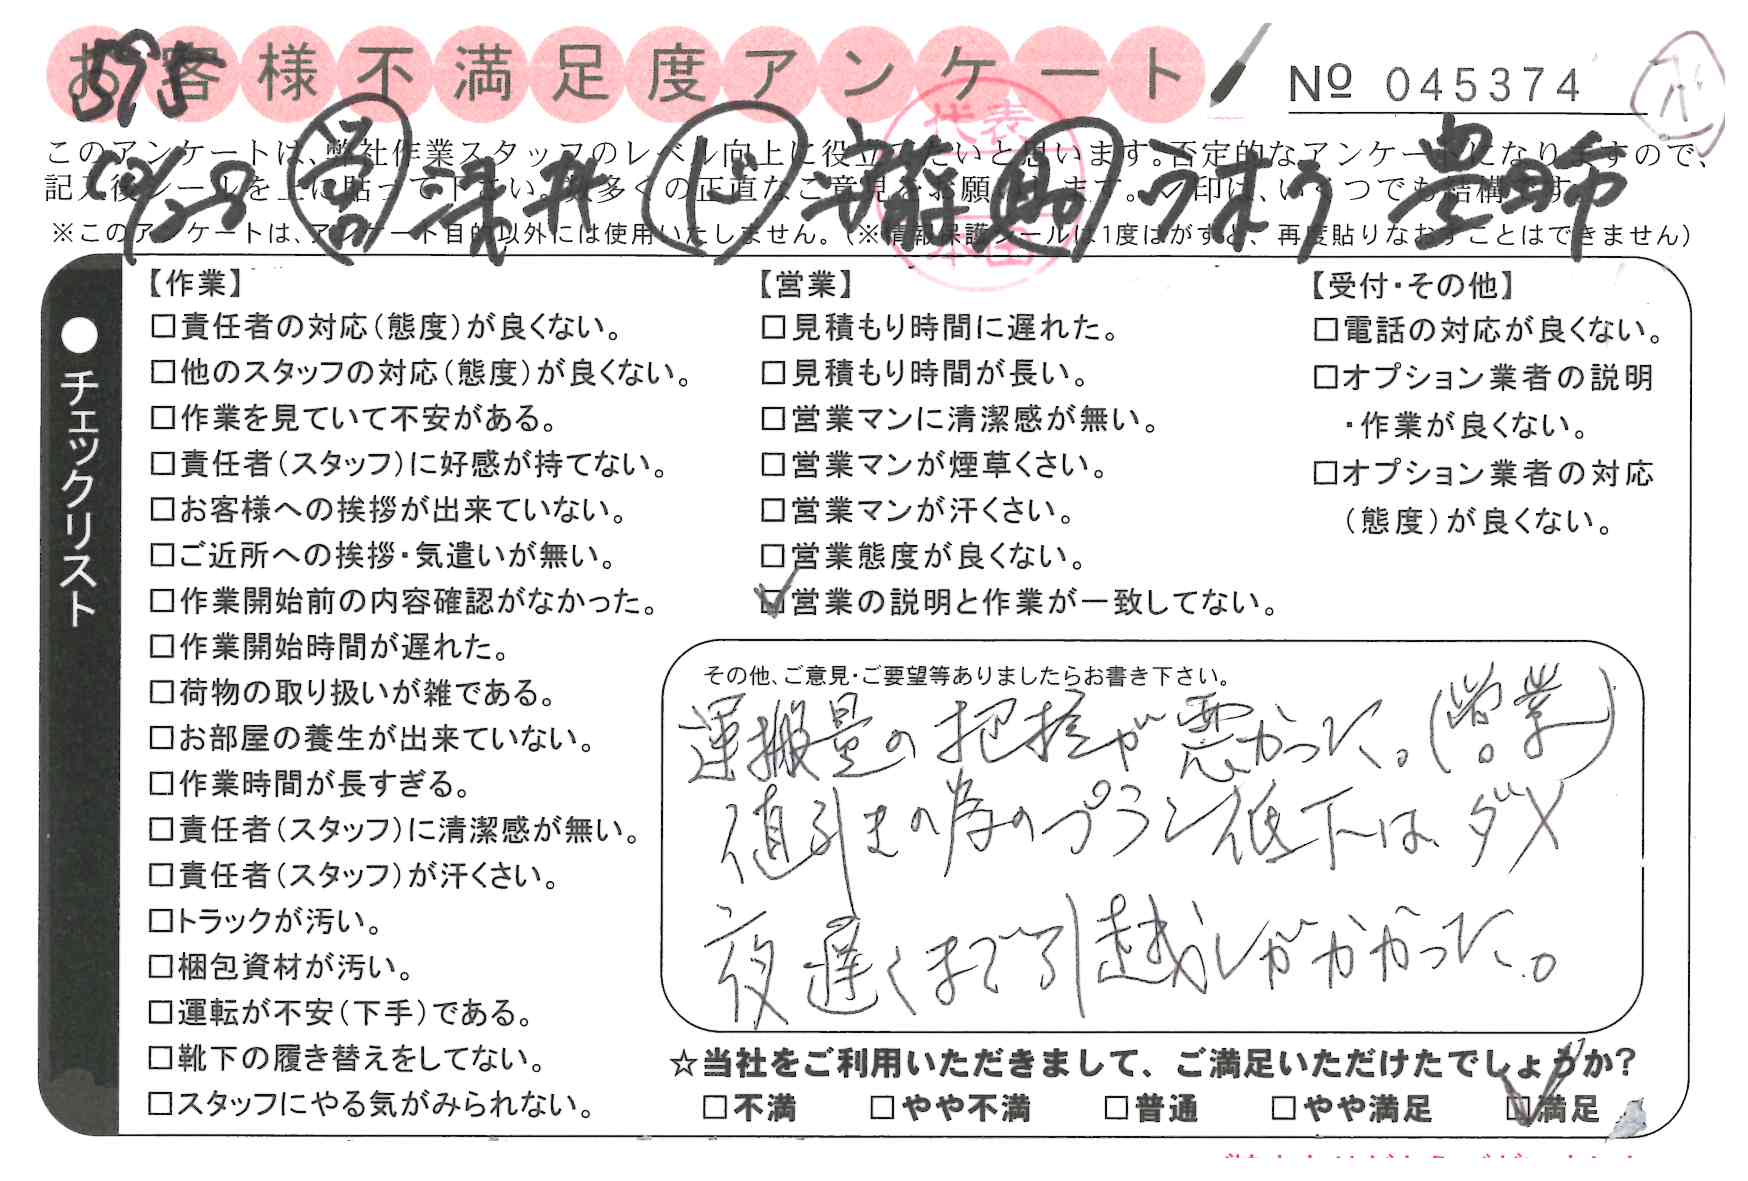 お客様不満足度アンケート
595
№ 045374
このアンケートは、弊社作業スタッフのレベル向上に役立てたいと思います。否定的なアンケートになりますので、
記入後シールを上に貼って下さい。数多くの正直なご意見をお願いします。✓印は、いくつでも結構です。
※このアンケートは、アンケート目的以外には使用いたしません。(※情報保護シールは1度はがすと、再度貼りなおすことはできません)
代表
本田
豊田市
●チェックリスト
【作業】
□責任者の対応(態度)が良くない。
□他のスタッフの対応(態度)が良くない。
□作業を見ていて不安がある。
□責任者(スタッフ)に好感が持てない。
□お客様への挨拶が出来ていない。
□ご近所への挨拶・気遣いが無い。
□作業開始前の内容確認がなかった。
□作業開始時間が遅れた。
□荷物の取り扱いが雑である。
□お部屋の養生が出来ていない。
□作業時間が長すぎる。
□責任者(スタッフ)に清潔感が無い。
□責任者(スタッフ)が汗くさい。
□トラックが汚い。
□梱包資材が汚い。
□運転が不安(下手)である。
□靴下の履き替えをしてない。
□スタッフにやる気がみられない。
【営業】
□見積もり時間に遅れた。
□見積もり時間が長い。
□営業マンに清潔感が無い。
□営業マンが煙草くさい。
□営業マンが汗くさい。
□営業態度が良くない。
☑営業の説明と作業が一致してない。
【受付・その他】
□電話の対応が良くない。
□オプション業者の説明
・作業が良くない。
□オプション業者の対応
(態度)が良くない。
その他、ご意見・ご要望等ありましたらお書き下さい。
運搬量の把握が悪かった。(営業)
値引きの為のプラン低下は、ダメ
夜遅くまで引越しがかかった。
☆当社をご利用いただきまして、ご満足いただけたでしょうか?
□不満 □やや不満 □普通 □やや満足 ☑満足